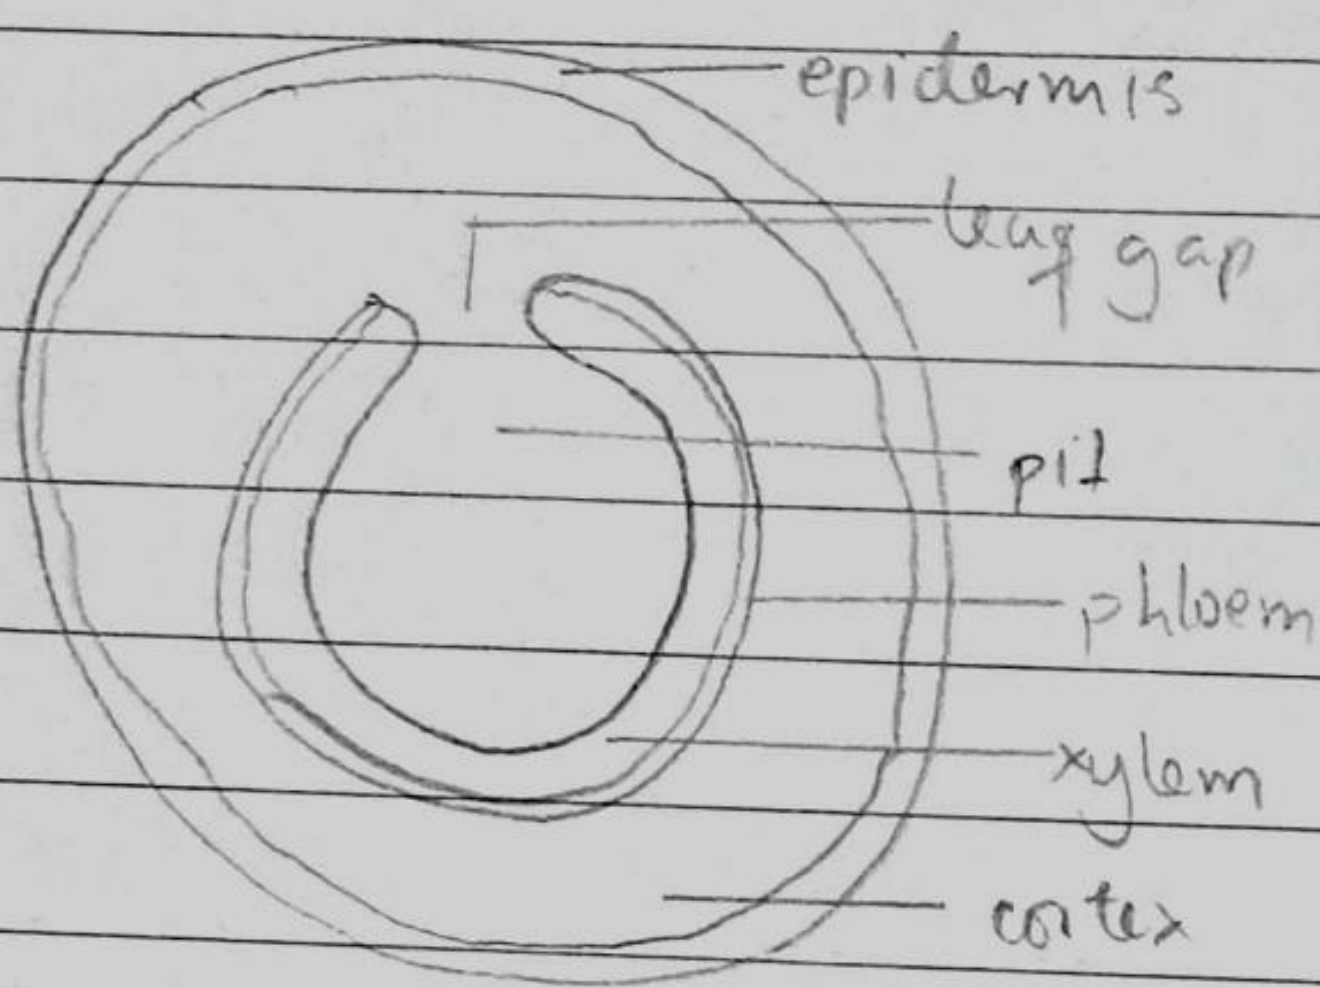 epidermis
leaf gap
pit
phloem
xylem
cortex